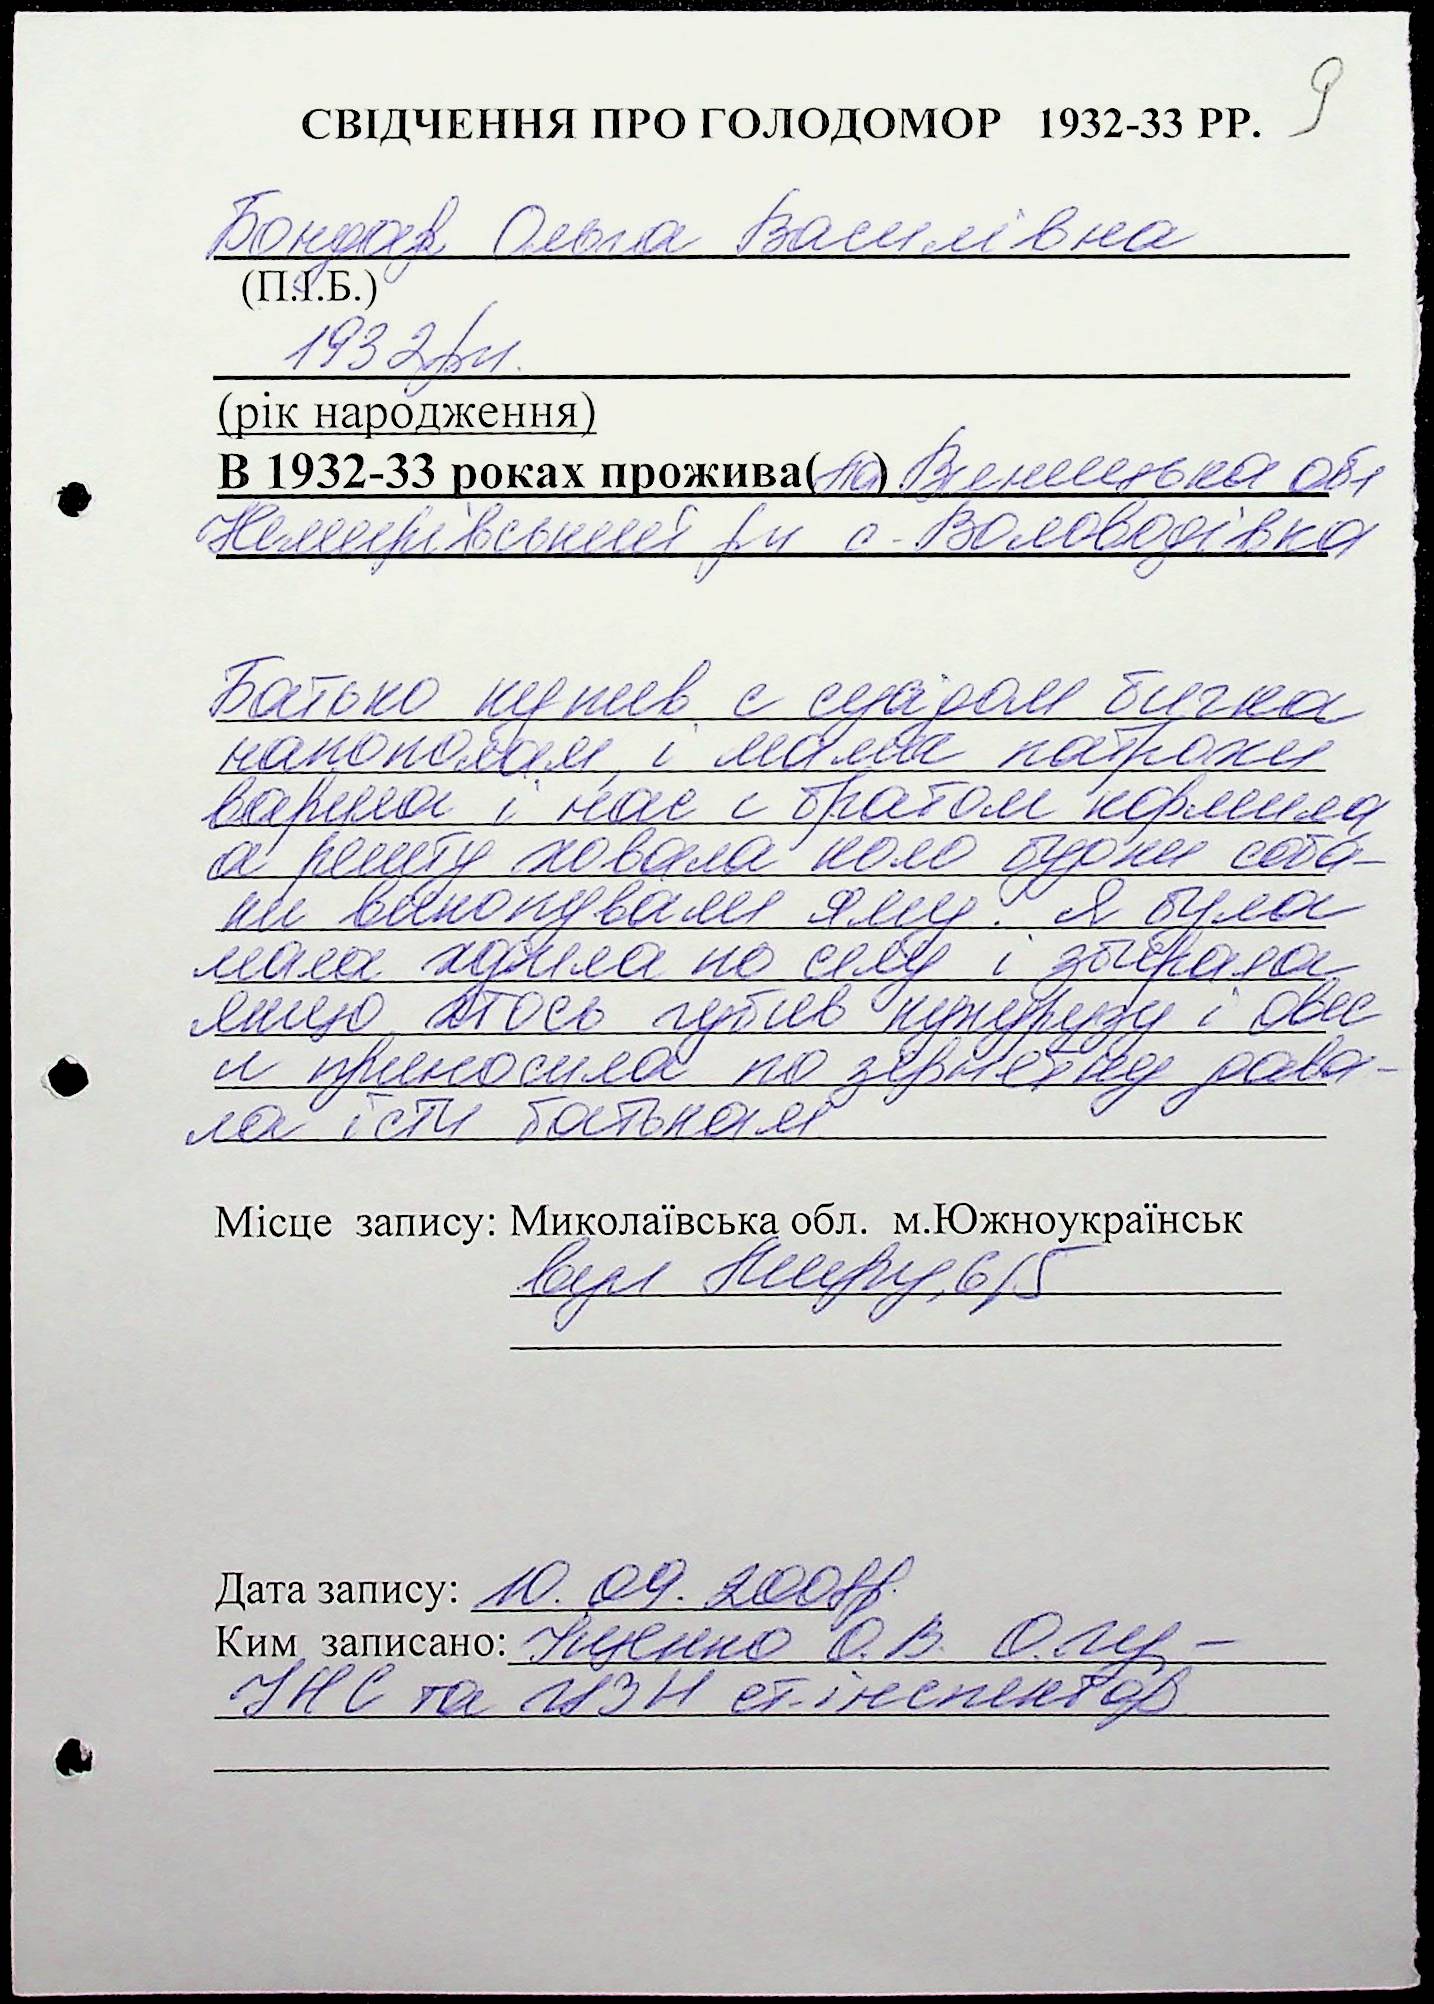 9
СВІДЧЕННЯ ПРО ГОЛОДОМОР 1932-33 РР.
Бондар Ольга Василівна
(П.І.Б.)
1932 рн.
(рік народження)
В 1932-33 роках прожива(ла) Вінницька обл
Немирівський рн с. Воловодівка
Батько купив с сусідом бичка
напополам, і мама патрохи
варила і нас с братом кормила
а решту ховала коло будки соба-
ки викопували яму. Я була
мала ходила по селу і збирала
якщо хтось губив кукурузу і овес
и приносила по зернетку дава-
ла їсти батькам
Місце запису: Миколаївська обл. м.Южноукраїнськ
вул Миру, 6/5
Дата запису: 10.09.2008р.
Ким записано: О.В.
УНС та ЦЗН ст.інспектор